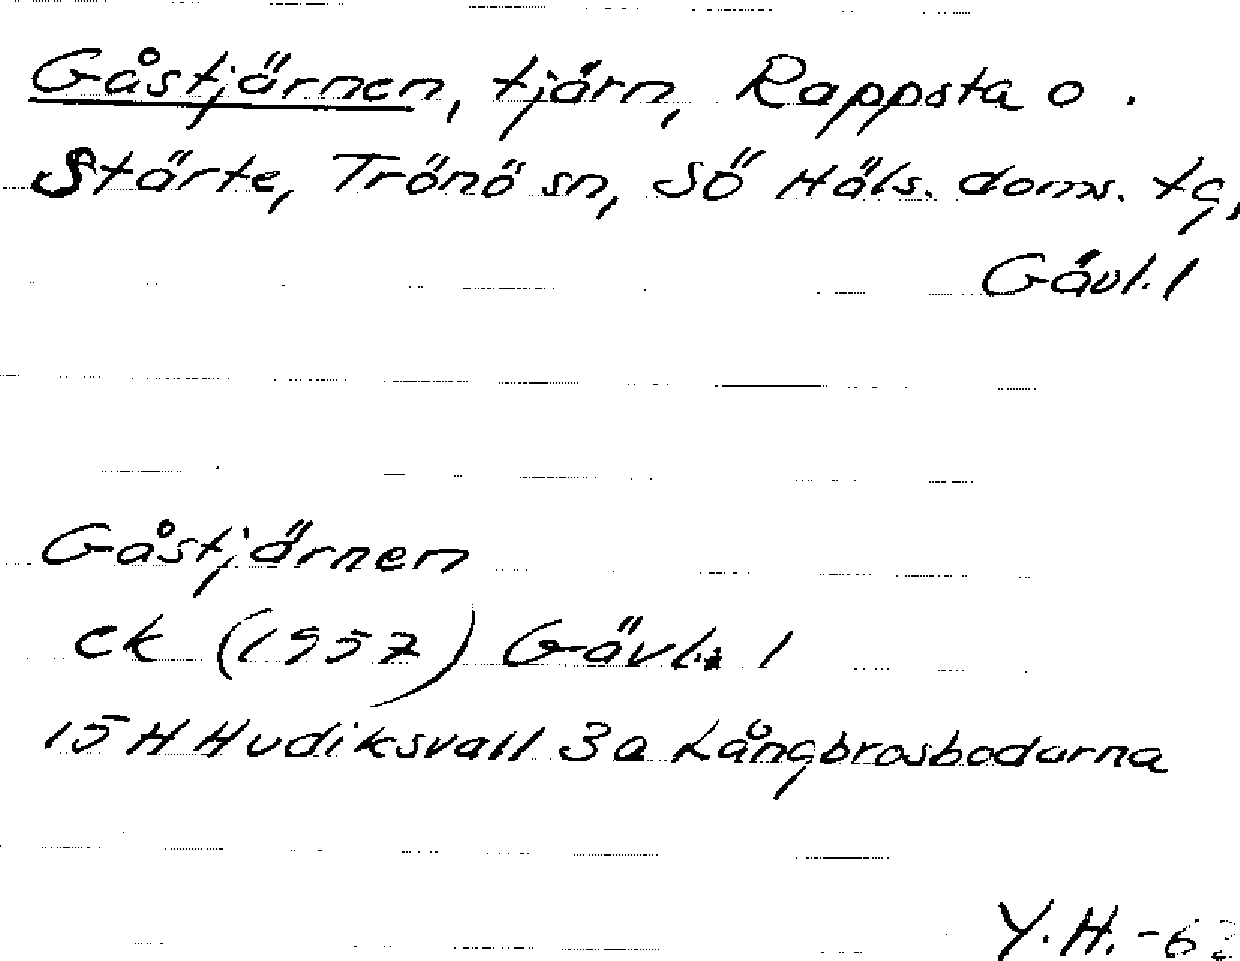 Gåstjärnen, tjärn, Rappsta o.
Stärte, Trönö sn, SÖ Häls. doms. tg,
Gävl. l
Gåstjärnen
ek (1957) Gävl. l
15 H Hudiksvall 3a Långbrosbodarna
Y.H. -63